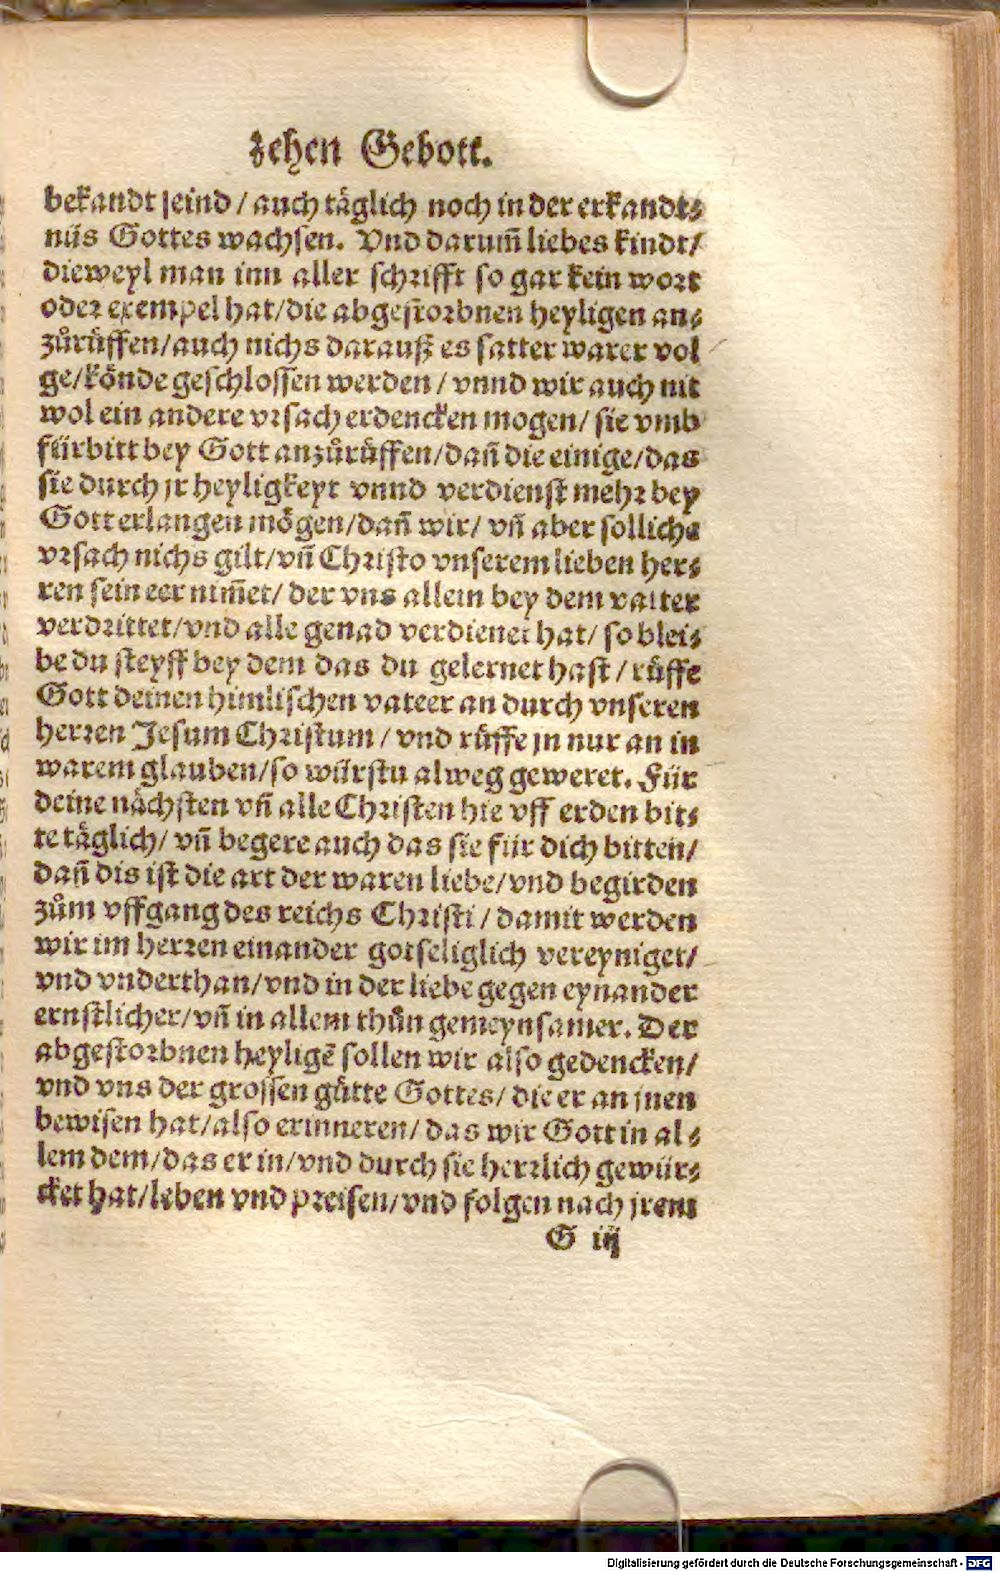 zehen Gebott.
bekandt seind / auch täglich noch in der erkandt⸗
nüs Gottes wachsen. Vnd darum̄ liebes kindt/
dieweyl man inn aller schrifft so gar kein wort
oder exempel hat/die abgestorbnen heyligen an⸗
zůrůffen/auch nichs darauß es satter warer vol
ge/könde geschlossen werden / vnnd wir auch nit
wol ein andere vrsach erdencken mogen/ sie vmb
fürbitt bey Gott anzůrůffen/dañ die einige/das
sie durch jr heyligkeyt vnnd verdienst mehr bey
Gott erlangen mögen/dañ wir/ vñ aber solliche
vrsach nichs gilt/vñ Christo vnserem lieben her⸗
ren sein eer nim̄et/ der vns allein bey dem vatter
verdrittet/vnd alle genad verdienet hat/ so blei⸗
be du steyff bey dem das du gelernet hast / růffe
Gott deinen himlischen vateer an durch vnseren
herren Jesum Christum / vnd růffe jn nur an in
warem glauben/so würstu alweg geweret. Für
deine nächsten vñ alle Christen hie vff erden bit⸗
te täglich/ vñ begere auch das sie für dich bitten/
dañ dis ist die art der waren liebe/vnd begirden
zům vffgang des reichs Christi / damit werden
wir im herren einander gotseliglich vereyniget/
vnd vnderthan/vnd in der liebe gegen eynander
ernstlicher/vñ in allem thůn gemeynsamer. Der
abgestorbnen heyligē sollen wir also gedencken/
vnd vns der grossen gůtte Gottes/ die er an jnen
bewisen hat/also erinneren/ das wir Gott in al⸗
lem dem/das er in/vnd durch sie herrlich gewür⸗
cket hat/leben vnd preisen/vnd folgen nach jrem
G iij
Digitalisierung gefördert durch die Deutsche Forschungsgemeinschaft - DFG